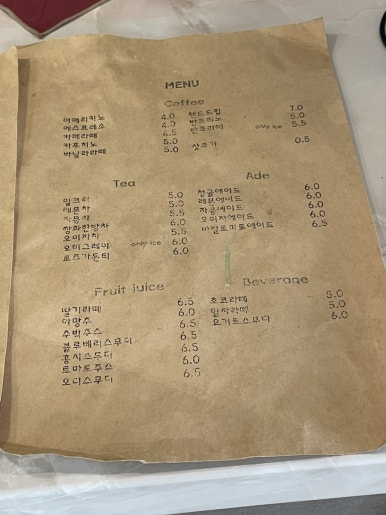 MENU
Coffee
아메리카노 4.0
에스프레소 4.0
카페라떼 4.5
카푸치노 5.0
바닐라라떼 5.0
핸드드립 7.0
반트리노 5.0
반코라떼 only ice 5.5
샷추가 0.5
Tea
밀크티 5.0
레몬차 5.0
자몽차 5.5
쌍화한방차 6.0
오미자차 5.5
오미그레이 only ice 6.0
로즈가든티 6.0
Ade
청귤에이드 6.0
레몬에이드 6.0
자몽에이드 6.0
오미자에이드 6.0
바질토마토에이드 6.5
Fruit juice
딸기라떼 6.5
아망추 6.0
수박주스 6.5
블루베리스무디 6.5
홍시스무디 6.5
토마토주스 6.0
오디스무디 6.5
Beverage
초코라떼 5.0
말차라떼 5.0
요거트스무디 6.0